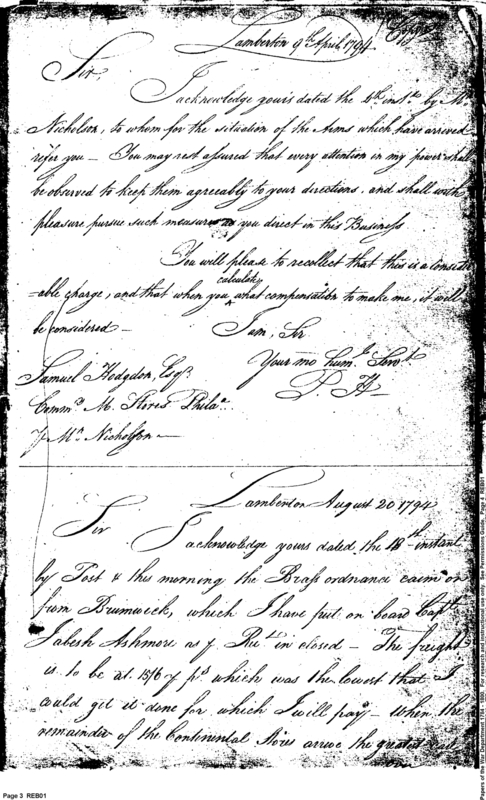 Lamberton 9th April 1794. Copy
Sir,
I acknowledge yours dated the 4th inst. by Mr.
Nicholson, to whom for the situation of the Arms which have arrived
refer you – You may rest assured that every attention in my power shall
be observed to keep them agreeably to your directions, and shall with
pleasure pursue such measures as you direct in this Business
You will please to recollect that this is a consider
-able charge, and that when you calculate what compensation to make me, it will
be considered –
I am, Sir
Your mo humle. Servt.
P. H–
Samuel Hodgdon, Esqr.
Commy. M. Stores Phila.
Mr. Nicholson –
Lamberton August 20 1794
Sir
I acknowledge yours dated the 18th instant
by Post & this morning the Brass ordnance came on
from Brunswick, which I have put on board Capt.
Jabesh Ashmore as Rect. in closed – The freight
is to be at 15/6 which was the lowest that I
could get it done for which I will pay – When the
remainder of the Continental Stores arrive the greatest
Page 3 REB01
Papers of the War Department 1784 - 1800. For research and instructional use only. See Permissions Guide. Page 8 REB01